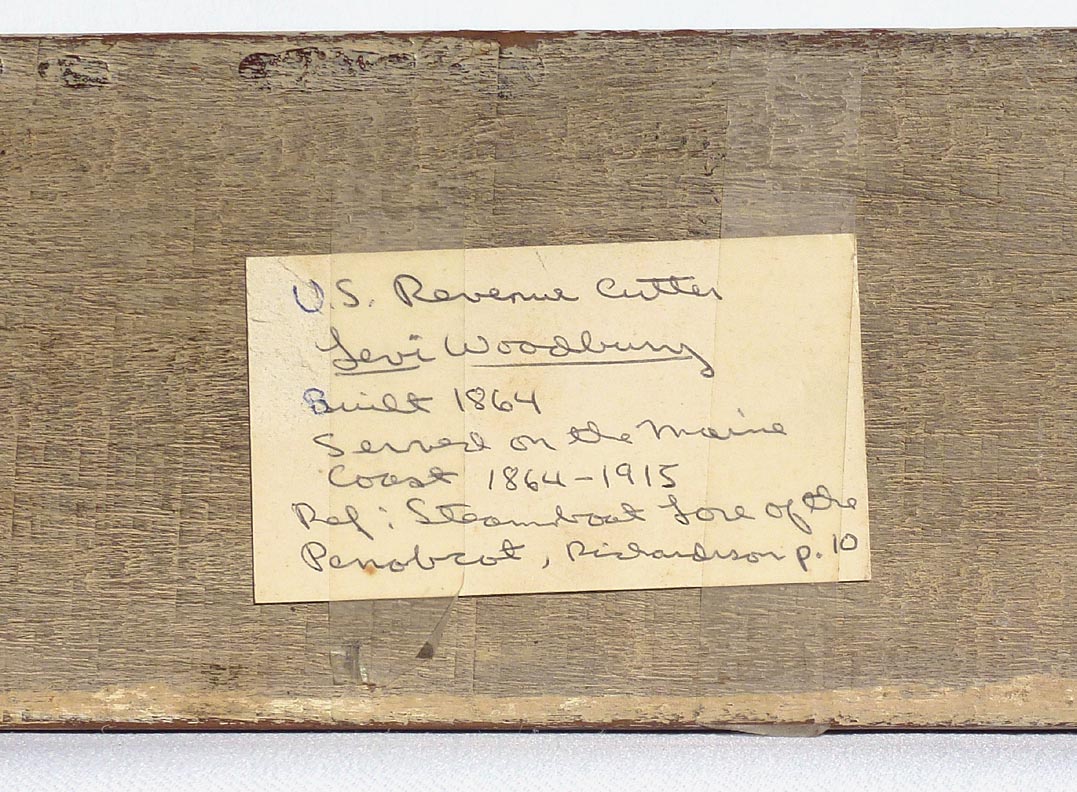 U.S. Revenue Cutter
Levi Woodbury
Built 1864
Served on the Maine
Coast 1864-1915
Ref: Steamboat Lore of the
Penobscot, Richardson p. 10